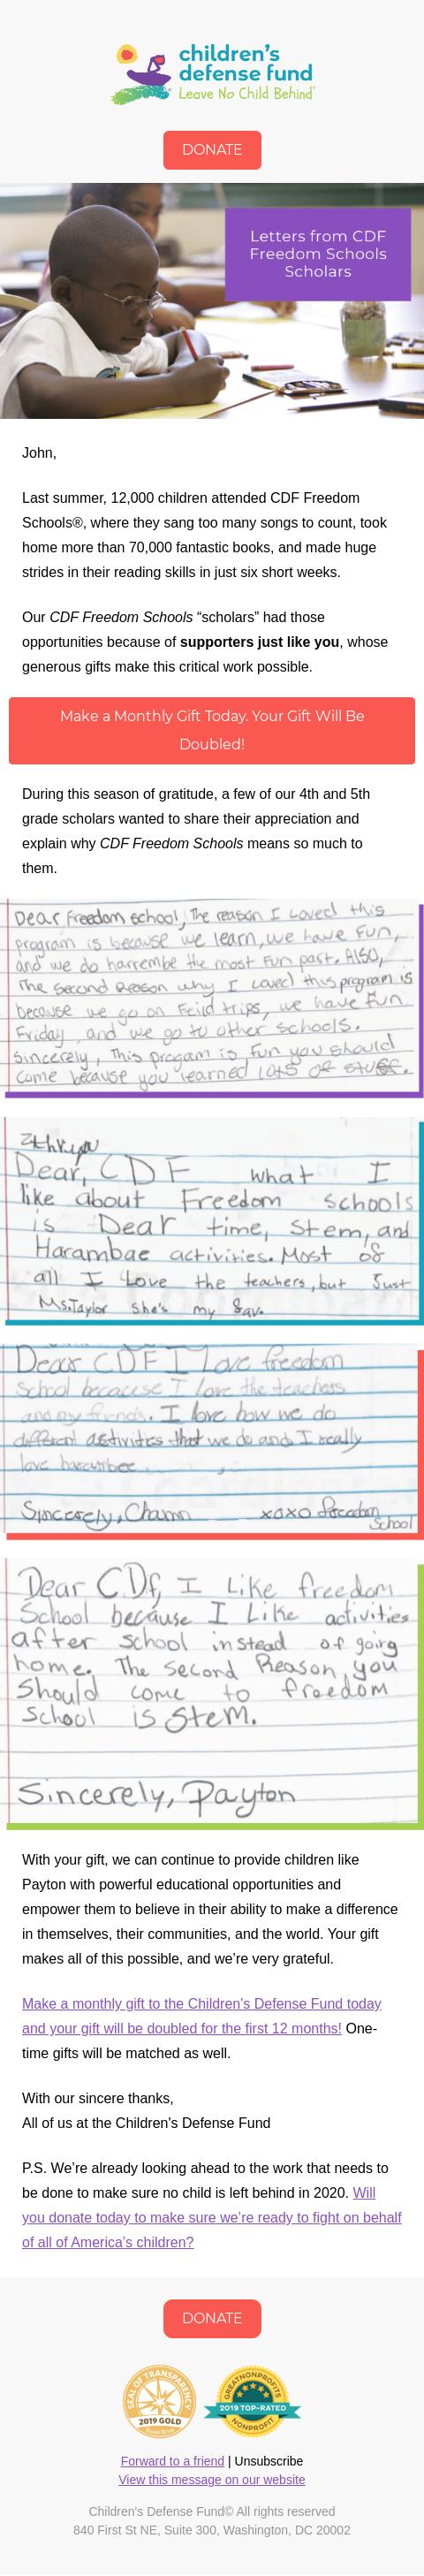 children's
defense fund
Leave No Child Behind®
DONATE
Letters from CDF
Freedom Schools
Scholars
John,
Last summer, 12,000 children attended CDF Freedom
Schools®, where they sang too many songs to count, took
home more than 70,000 fantastic books, and made huge
strides in their reading skills in just six short weeks.
Our CDF Freedom Schools “scholars” had those
opportunities because of supporters just like you, whose
generous gifts make this critical work possible.
Make a Monthly Gift Today. Your Gift Will Be
Doubled!
During this season of gratitude, a few of our 4th and 5th
grade scholars wanted to share their appreciation and
explain why CDF Freedom Schools means so much to
them.
Dear freedom school, The reason I Loved this
program is because we learn, we have Fun,
and we do harrembe the most Fun part. AlSO,
The Second Reason why I Loved this program is
because we go on Feild trips, we have Fun
Friday, and we go to other schools.
Sincerely, This progam is fun you should
come because you learned lots of stuff.
Dear, CDF what I
like about Freedom schools
is Dear time, Stem, and
Harambae activities. Most of
all I Love the teachers, but Just
Ms.Taylor She's my fav.
Dear CDF I Love freedom
School becacese I love the teachers
and my friends. I love how we do
different activities that we do and I really
love
Sincerely, xoxo Freedom
School
Dear CDf, I Like freedom
School because I Like activities
after School instead of going
home. The second Reason you
Should come to freedom
School is Stem.
Sincerely, Payton
With your gift, we can continue to provide children like
Payton with powerful educational opportunities and
empower them to believe in their ability to make a difference
in themselves, their communities, and the world. Your gift
makes all of this possible, and we’re very grateful.
Make a monthly gift to the Children's Defense Fund today
and your gift will be doubled for the first 12 months! One-
time gifts will be matched as well.
With our sincere thanks,
All of us at the Children's Defense Fund
P.S. We’re already looking ahead to the work that needs to
be done to make sure no child is left behind in 2020. Will
you donate today to make sure we’re ready to fight on behalf
of all of America’s children?
DONATE
SEAL OF TRANSPARENCY
2019 GOLD
GREATNONPROFITS
2019 TOP-RATED
NONPROFIT
Forward to a friend | Unsubscribe
View this message on our website
Children's Defense Fund© All rights reserved
840 First St NE, Suite 300, Washington, DC 20002